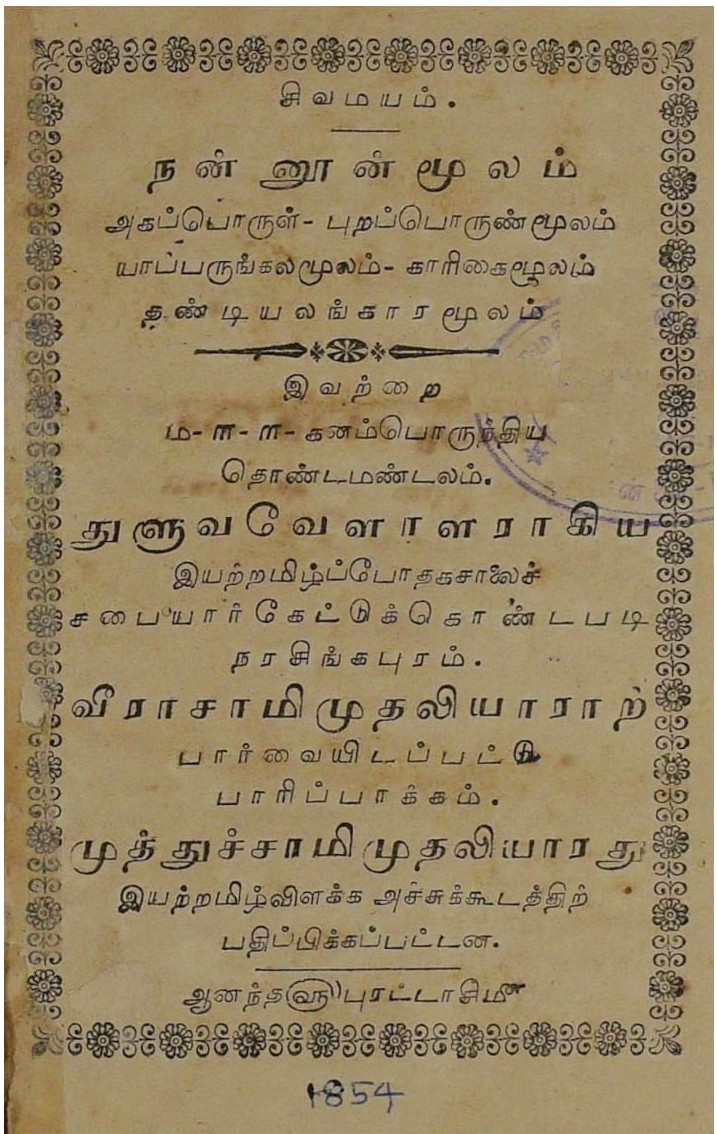 சிவமயம்.
நன்னூன்மூலம்
அகப்பொருள்-புறப்பொருண்மூலம்
யாப்பருங்கலமூலம்-காரிகைமூலம்
தண்டியலங்காரமூலம்
இவற்றை
ம-ா-ா-கனம்பொருந்திய
தொண்டமண்டலம்.
துளுவவேளாளராகிய
இயற்றமிழ்ப்போதகசாலைச்
சபையார்கேட்டுக்கொண்டபடி
நரசிங்கபுரம்.
வீராசாமிமுதலியாராற்
பார்வையிடப்பட்டு
பாரிப்பாக்கம்.
முத்துச்சாமிமுதலியாரது
இயற்றமிழ்விளக்க அச்சுக்கூடத்திற்
பதிப்பிக்கப்பட்டன.
ஆனந்த௵புரட்டாசி௴
1854